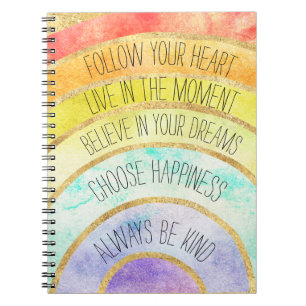 FOLLOW YOUR HEART
LIVE IN THE MOMENT
BELIEVE IN YOUR DREAMS
CHOOSE HAPPINESS
ALWAYS BE KIND